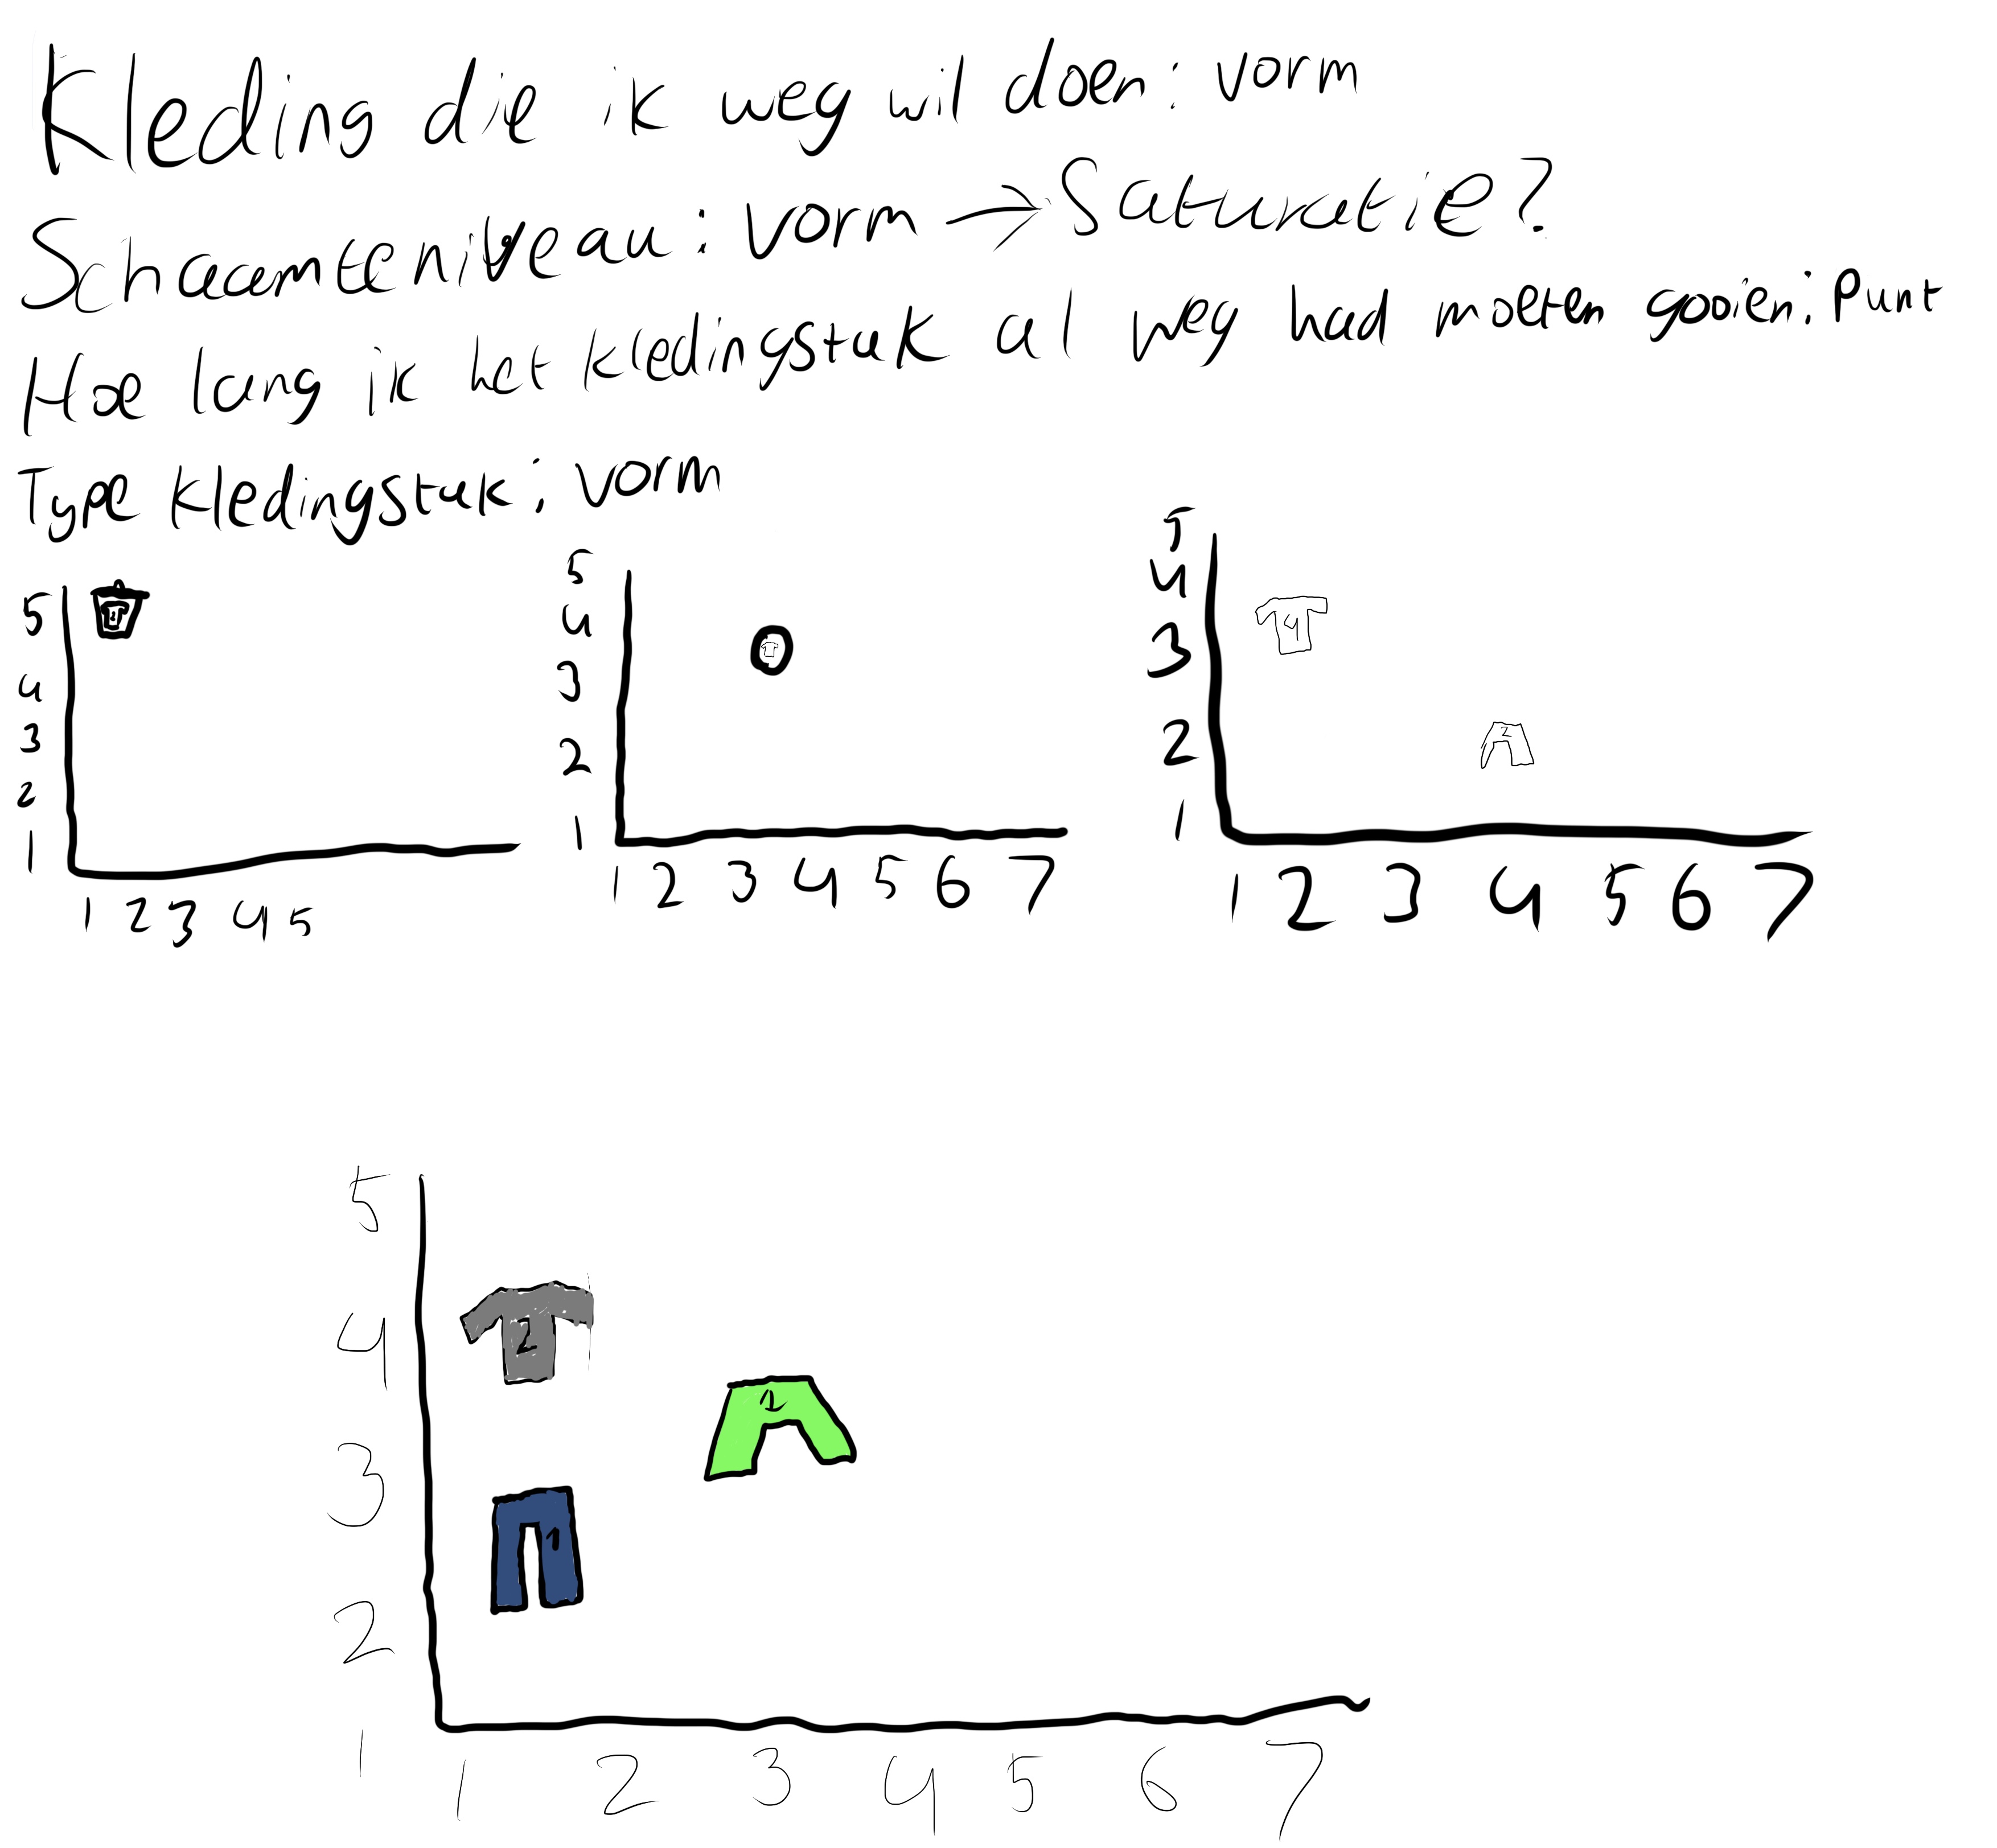 Kleding die ik weg wil doen: vorm
Schaamteniveau: vorm → Saturatie?
Hoe lang ik het kledingstuk al weg had moeten gooien: Punt
Type kledingstuk: vorm
5
4
3
2
1
1 2 3 4 5
5
4
3
2
1
T
1 2 3 4 5 6 7
5
4
3
2
1
4
2
1 2 3 4 5 6 7
5
4
3
2
1
2
2
1
1 2 3 4 5 6 7